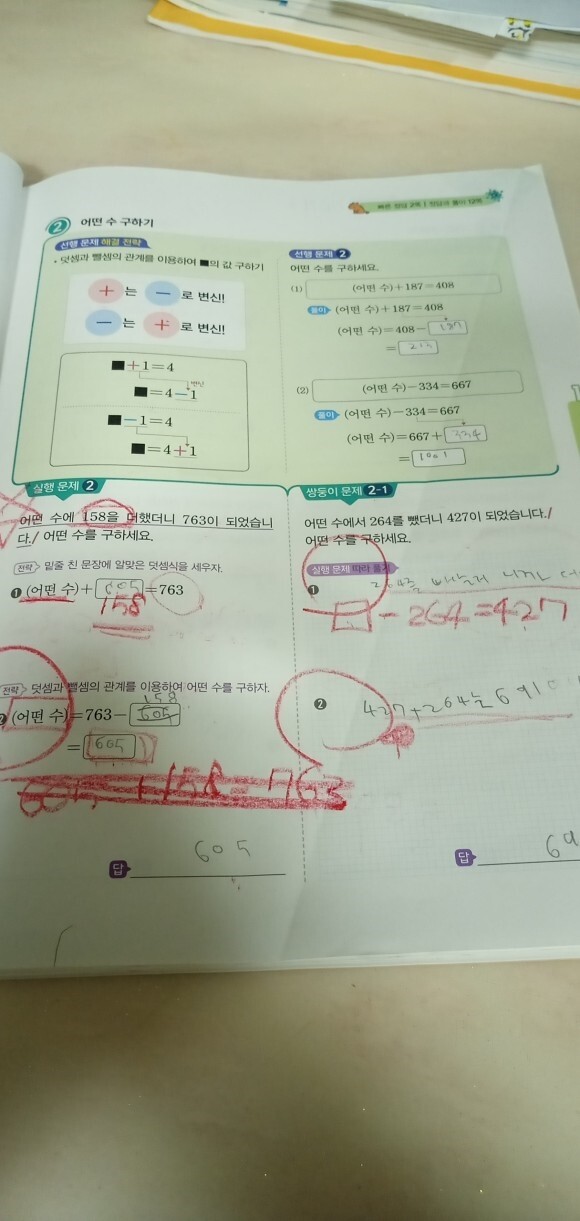 빠른 정답 2쪽 | 정답과 풀이 12쪽
2 어떤 수 구하기
선행 문제 해결 전략
• 덧셈과 뺄셈의 관계를 이용하여 ■의 값 구하기
+는 −로 변신!
−는 +로 변신!
■+1=4
■=4−1
■−1=4
■=4+1
선행 문제 2
어떤 수를 구하세요.
(1) (어떤 수)+187=408
풀이 (어떤 수)+187=408
(어떤 수)=408−187
=
(2) (어떤 수)−334=667
풀이 (어떤 수)−334=667
(어떤 수)=667+334
=1001
실행 문제 2
어떤 수에 158을 더했더니 763이 되었습니
다./ 어떤 수를 구하세요.
전략 밑줄 친 문장에 알맞은 덧셈식을 세우자.
❶ (어떤 수)+605=763
158
전략 덧셈과 뺄셈의 관계를 이용하여 어떤 수를 구하자.
158
❷ (어떤 수)=763−605
=605
+158=763
답 605
쌍둥이 문제 2-1
어떤 수에서 264를 뺐더니 427이 되었습니다./
어떤 수를 구하세요.
실행 문제 따라 풀기
❶ 264를
□−264=427
❷ 427+264는 691
답 69